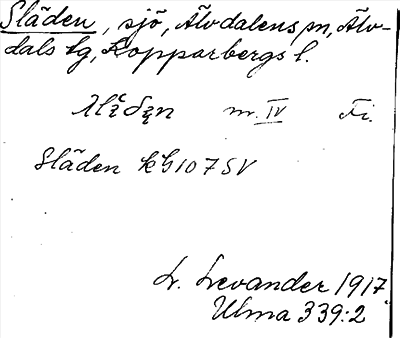 Släden, sjö, Älvdalens sn, Älv-
dals tg, Kopparbergs l.
m. IV Fi.
Släden kG107SV
L. Levander 1917
Ulma 339:2